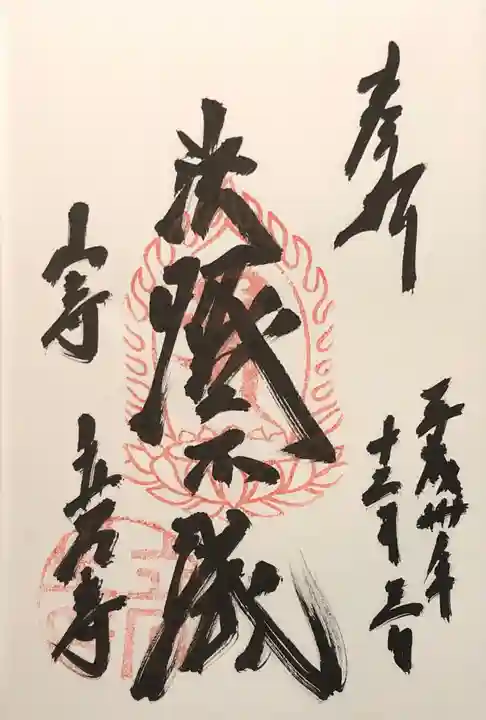 奉拝
平成卅年
十二月三日
法燈不滅
山寺
立石寺